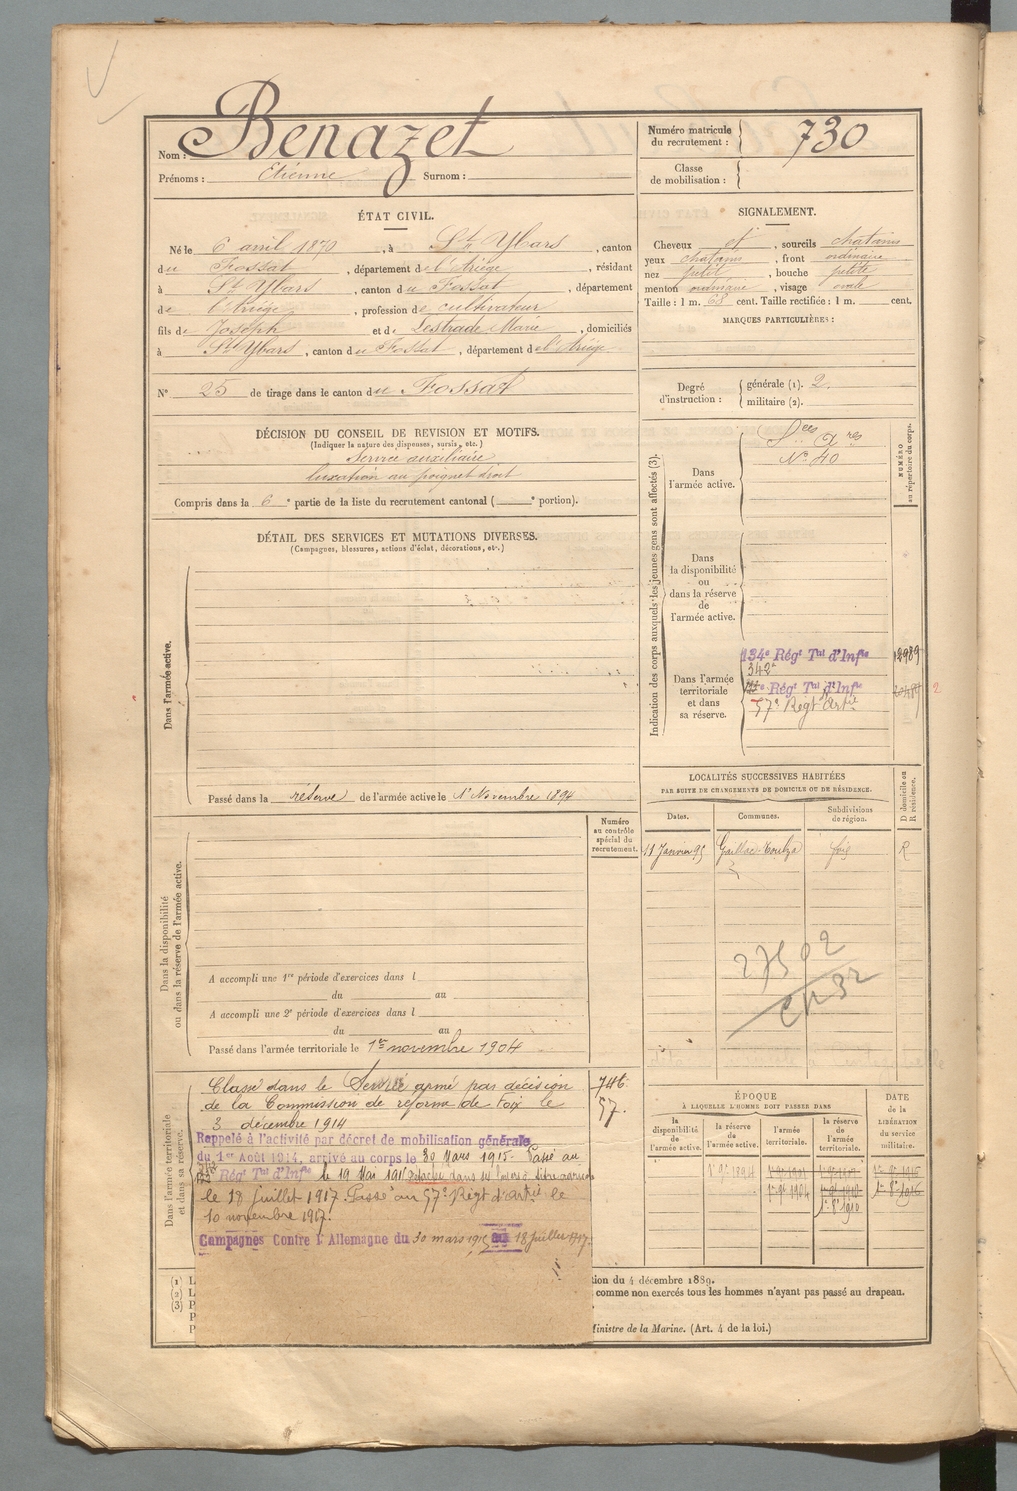 Nom : Benazet
Prénoms : Etienne Surnom :
Numéro matricule du recrutement : 730
Classe de mobilisation :
ÉTAT CIVIL.
Né le 6 avril 1870, à St Ybars, canton
du Fossat, département de l'Ariège, résidant
à St Ybars, canton du Fossat, département
de l'Ariège, profession de cultivateur
fils de Joseph et de Lestrade Marie, domiciliés
à St Ybars, canton du Fossat, département de l'Ariège
N° 25 de tirage dans le canton du Fossat
SIGNALEMENT.
Cheveux et, sourcils chatains
yeux chatains, front ordinaire
nez petit, bouche petite
menton ordinaire, visage ovale
Taille : 1 m. 68 cent. Taille rectifiée : 1 m. cent.
MARQUES PARTICULIÈRES :
Degré d'instruction : générale (1). 2.
militaire (2).
DÉCISION DU CONSEIL DE REVISION ET MOTIFS.
(Indiquer la nature des dispenses, sursis, etc.)
Service auxiliaire
luxation au poignet droit
Compris dans la 6e partie de la liste du recrutement cantonal ( e portion).
DÉTAIL DES SERVICES ET MUTATIONS DIVERSES.
(Campagnes, blessures, actions d'éclat, décorations, etc.)
Dans l'armée active.
Passé dans la réserve de l'armée active le 1r Novembre 1894
Indication des corps auxquels les jeunes gens sont affectés (3).
NUMÉRO au répertoire du corps.
Dans l'armée active.
Sces Ares
N° 40
Dans la disponibilité ou dans la réserve de l'armée active.
Dans l'armée territoriale et dans sa réserve.
134e Régt Tal d'Infie
342e
Régt Tal d'Infie
57e Régt d'Artie
LOCALITÉS SUCCESSIVES HABITÉES
PAR SUITE DE CHANGEMENTS DE DOMICILE OU DE RÉSIDENCE.
D domicile ou R résidence.
Dates. Communes. Subdivisions de région.
11 Janvier 95 Gaillac-Toulza Foix R
27502
Numéro au contrôle spécial du recrutement.
Dans la disponibilité ou dans la réserve de l'armée active.
A accompli une 1re période d'exercices dans l
du au
A accompli une 2e période d'exercices dans l
du au
Passé dans l'armée territoriale le 1er novembre 1904
Dans l'armée territoriale et dans sa réserve.
Classé dans le Service armé par décision
de la Commission de réforme de Foix le
3 décembre 1914
746
57.
Rappelé à l'activité par décret de mobilisation générale
du 1er Août 1914, arrivé au corps le 30 Mars 1915. Passé au
Régt Tal d'Infie le 19 Mai 191
le 18 juillet 1917. Passé au 57e Régt d'Artie le
10 novembre 1917.
Campagnes Contre l'Allemagne du 30 mars 1915 au 18 juillet 1917.
ÉPOQUE
À LAQUELLE L'HOMME DOIT PASSER DANS
la disponibilité de l'armée active. la réserve de l'armée active. l'armée territoriale. la réserve de l'armée territoriale.
DATE de la LIBÉRATION du service militaire.
1r 9bre 1894
1r 9bre 1904
1r 8bre 1910
(1) L
tion du 4 décembre 1889.
(2) L
comme non exercés tous les hommes n'ayant pas passé au drapeau.
(3) P
P
Ministre de la Marine. (Art. 4 de la loi.)